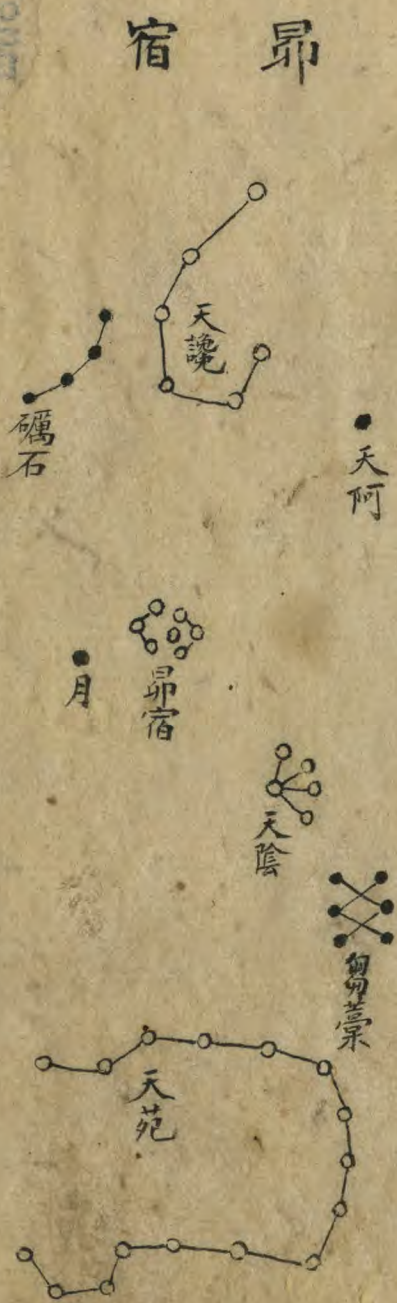 昴宿
天讒
礪石
天阿
昴宿
月
天陰
芻藁
天苑